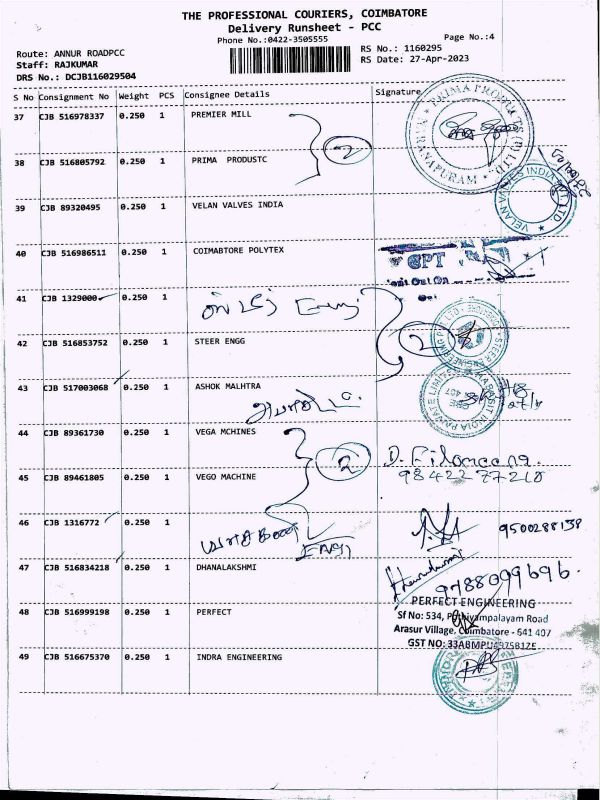 THE PROFESSIONAL COURIERS, COIMBATORE
Delivery Runsheet - PCC
Phone No.:0422-3505555
Page No.:4
Route: ANNUR ROADPCC
RS No.: 1160295
Staff: RAJKUMAR
RS Date: 27-Apr-2023
DRS No.: DCJB116029504
S No Consignment No Weight PCS Consignee Details Signature
37 CJB 516978337 0.250 1 PREMIER MILL
2
38 CJB 516805792 0.250 1 PRIMA PRODUSTC
39 CJB 89320495 0.250 1 VELAN VALVES INDIA
VELAN VALVES INDIA
40 CJB 516986511 0.250 1 COIMABTORE POLYTEX
GPT
41 CJB 1329000 0.250 1
42 CJB 516853752 0.250 1 STEER ENGG
2
43 CJB 517003068 0.250 1 ASHOK MALHTRA
44 CJB 89361730 0.250 1 VEGA MCHINES
2
D. Filomeena
9842277210
45 CJB 89461805 0.250 1 VEGO MACHINE
46 CJB 1316772 0.250 1
9500288138
47 CJB 516834218 0.250 1 DHANALAKSHMI
9788099696.
48 CJB 516999198 0.250 1 PERFECT
PERFECT ENGINEERING
Sf No: 534, Pothiyampalayam Road
Arasur Village, Coimbatore - 641 407
49 CJB 516675370 0.250 1 INDRA ENGINEERING